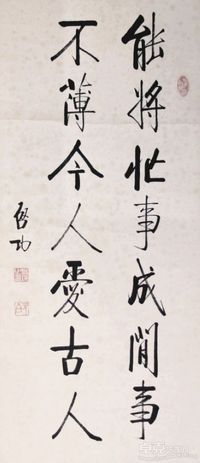 能将忙事成閒事
不薄今人愛古人
啓功